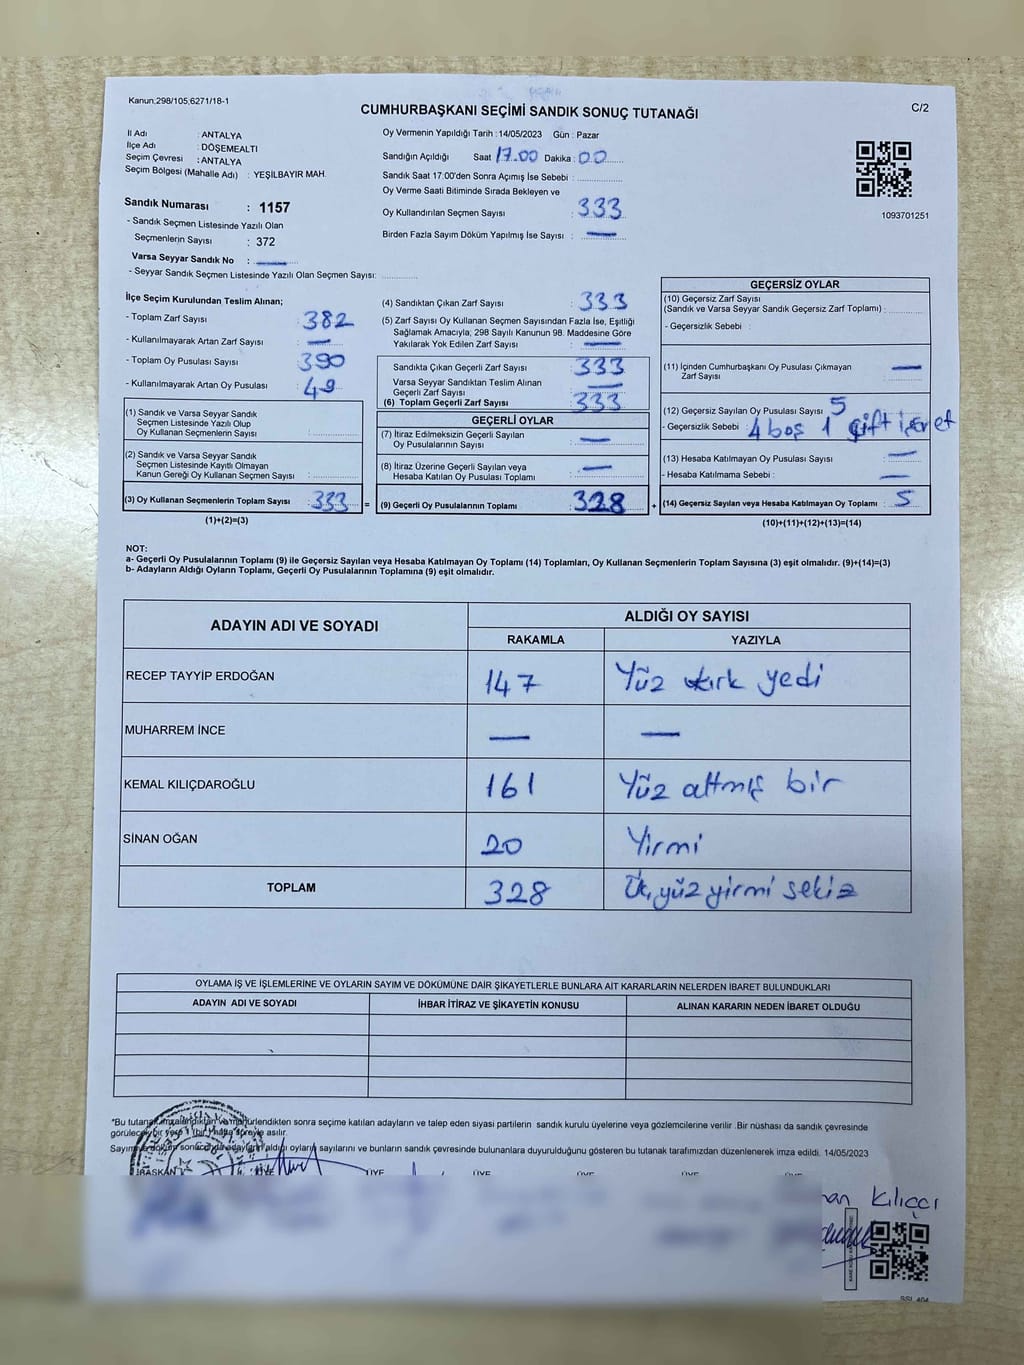 Kanun;298/105,6271/18-1
CUMHURBAŞKANI SEÇİMİ SANDIK SONUÇ TUTANAĞI
C/2
İl Adı : ANTALYA
İlçe Adı : DÖŞEMEALTI
Seçim Çevresi : ANTALYA
Seçim Bölgesi (Mahalle Adı) : YEŞİLBAYIR MAH.
Sandık Numarası : 1157
- Sandık Seçmen Listesinde Yazılı Olan
Seçmenlerin Sayısı : 372
Varsa Seyyar Sandık No : —
- Seyyar Sandık Seçmen Listesinde Yazılı Olan Seçmen Sayısı: ............
Oy Vermenin Yapıldığı Tarih : 14/05/2023 Gün : Pazar
Sandığın Açıldığı Saat 17.00 Dakika : 00
Sandık Saat 17:00'den Sonra Açımış İse Sebebi : ............
Oy Verme Saati Bitiminde Sırada Bekleyen ve
Oy Kullandırılan Seçmen Sayısı : 333
Birden Fazla Sayım Döküm Yapılmış İse Sayısı : —
1093701251
İlçe Seçim Kurulundan Teslim Alınan;
- Toplam Zarf Sayısı : 382
- Kullanılmayarak Artan Zarf Sayısı : —
- Toplam Oy Pusulası Sayısı : 390
- Kullanılmayarak Artan Oy Pusulası : 49
(1) Sandık ve Varsa Seyyar Sandık
Seçmen Listesinde Yazılı Olup
Oy Kullanan Seçmenlerin Sayısı : ............
(2) Sandık ve Varsa Seyyar Sandık
Seçmen Listesinde Kayıtlı Olmayan
Kanun Gereği Oy Kullanan Seçmen Sayısı : ............
(3) Oy Kullanan Seçmenlerin Toplam Sayısı : 333 =
(1)+(2)=(3)
(4) Sandıktan Çıkan Zarf Sayısı : 333
(5) Zarf Sayısı Oy Kullanan Seçmen Sayısından Fazla İse, Eşitliği
Sağlamak Amacıyla; 298 Sayılı Kanunun 98. Maddesine Göre
Yakılarak Yok Edilen Zarf Sayısı : —
Sandıkta Çıkan Geçerli Zarf Sayısı : 333
Varsa Seyyar Sandıktan Teslim Alınan
Geçerli Zarf Sayısı : —
(6) Toplam Geçerli Zarf Sayısı : 333
GEÇERLİ OYLAR
(7) İtiraz Edilmeksizin Geçerli Sayılan
Oy Pusulalarının Sayısı : —
(8) İtiraz Üzerine Geçerli Sayılan veya
Hesaba Katılan Oy Pusulası Toplamı : —
(9) Geçerli Oy Pusulalarının Toplamı : 328 +
GEÇERSİZ OYLAR
(10) Geçersiz Zarf Sayısı
(Sandık ve Varsa Seyyar Sandık Geçersiz Zarf Toplamı) : ............
- Geçersizlik Sebebi :
(11) İçinden Cumhurbaşkanı Oy Pusulası Çıkmayan
Zarf Sayısı : —
(12) Geçersiz Sayılan Oy Pusulası Sayısı : 5
- Geçersizlik Sebebi : 4 boş 1 çift işaret
(13) Hesaba Katılmayan Oy Pusulası Sayısı : —
- Hesaba Katılmama Sebebi : —
(14) Geçersiz Sayılan veya Hesaba Katılmayan Oy Toplamı : 5
(10)+(11)+(12)+(13)=(14)
NOT:
a- Geçerli Oy Pusulalarının Toplamı (9) ile Geçersiz Sayılan veya Hesaba Katılmayan Oy Toplamı (14) Toplamları, Oy Kullanan Seçmenlerin Toplam Sayısına (3) eşit olmalıdır. (9)+(14)=(3)
b- Adayların Aldığı Oyların Toplamı, Geçerli Oy Pusulalarının Toplamına (9) eşit olmalıdır.
ADAYIN ADI VE SOYADI ALDIĞI OY SAYISI
RAKAMLA YAZIYLA
RECEP TAYYİP ERDOĞAN 147 Yüz kırk yedi
MUHARREM İNCE — —
KEMAL KILIÇDAROĞLU 161 Yüz altmış bir
SİNAN OĞAN 20 Yirmi
TOPLAM 328 Üç yüz yirmi sekiz
OYLAMA İŞ VE İŞLEMLERİNE VE OYLARIN SAYIM VE DÖKÜMÜNE DAİR ŞİKAYETLERLE BUNLARA AİT KARARLARIN NELERDEN İBARET BULUNDUKLARI
ADAYIN ADI VE SOYADI İHBAR İTİRAZ VE ŞİKAYETİN KONUSU ALINAN KARARIN NEDEN İBARET OLDUĞU
*Bu tutanak imzalandıktan ve mühürlendikten sonra seçime katılan adayların ve talep eden siyasi partilerin sandık kurulu üyelerine veya gözlemcilerine verilir .Bir nüshası da sandık çevresinde
görülecek bir yere 1 (bir) hafta süreyle asılır.
Sayım ve döküm sonucunda adayların aldığı oyların sayılarını ve bunların sandık çevresinde bulunanlara duyurulduğunu gösteren bu tutanak tarafımızdan düzenlenerek imza edildi. 14/05/2023
BAŞKAN ÜYE ÜYE ÜYE ÜYE ÜYE
Kılıççı